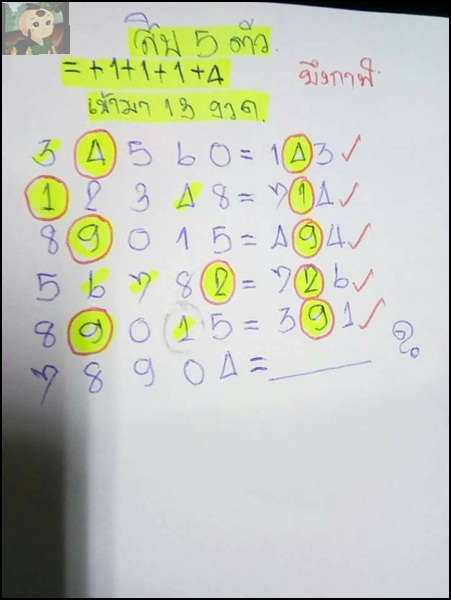 สิบ 5 ตัว.
=+1+1+1+4
เข้ามา 13 งวด.
บึงกาฬ
3 4 5 6 0 = 143 ✓
1 2 3 4 8 = 714 ✓
8 9 0 1 5 = 494 ✓
5 6 7 8 2 = 726 ✓
8 9 0 1 5 = 391 ✓
7 8 9 0 4 = ______